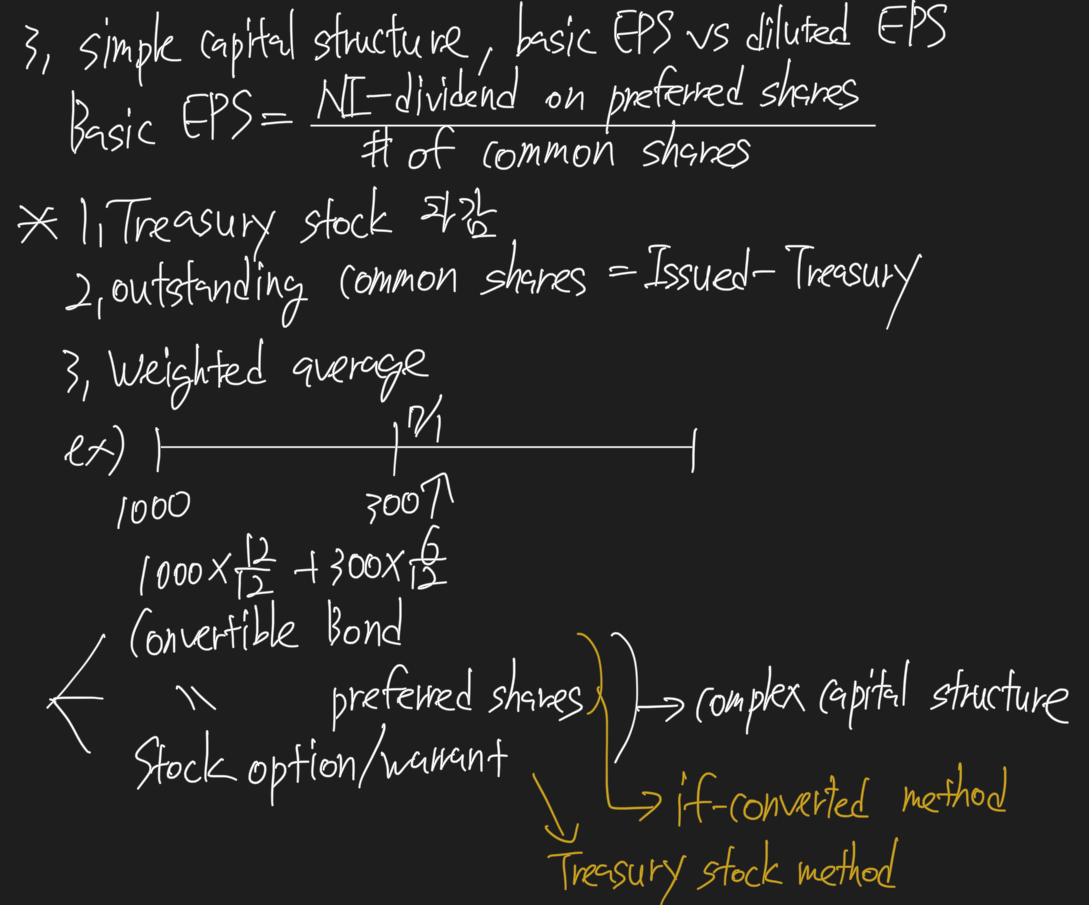 3, simple capital structure, basic EPS vs diluted EPS
Basic EPS = NI-dividend on preferred shares
# of common shares
* 1, Treasury stock 차감
2, outstanding common shares = Issued - Treasury
3, Weighted average
ex) 7/1
1000 300↑
1000 × 12/12 + 300 × 6/12
Convertible Bond
〃 preferred shares → complex capital structure
Stock option/warrant
→ if-converted method
Treasury stock method